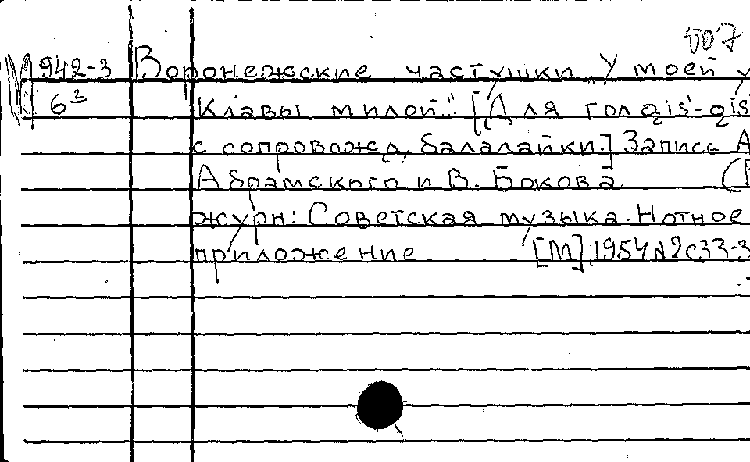 007
942-3 Воронежские частушки „У моей у
6² Клавы милой." [Для голоqis'-qis
с сопровожд. балалайки.] Запись А
Абрамского и В. Бокова (В
журн: Советская музыка. Нотное
приложение [М] 1954 №2 с 33-3